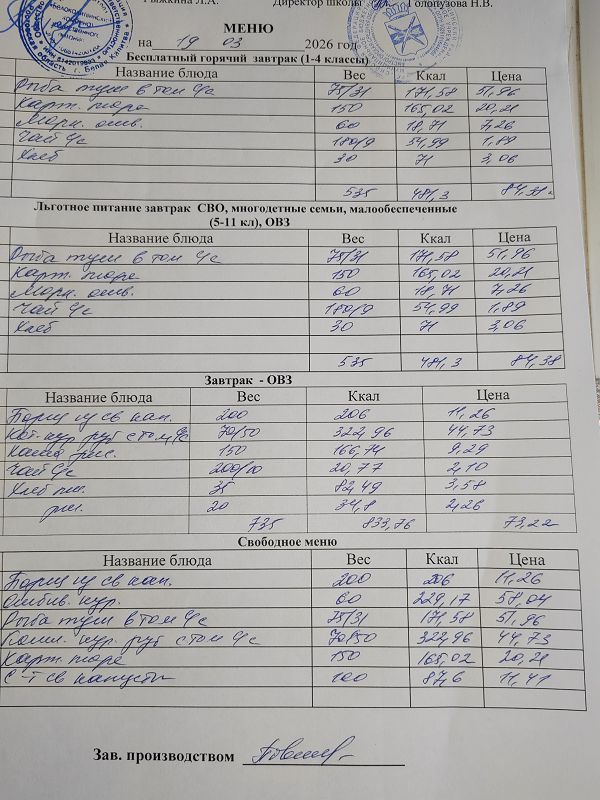 Рыжкина Л.А. Директор школы Голопузова Н.В.
МЕНЮ
на 19 03 2026 год
Бесплатный горячий завтрак (1-4 классы)
Название блюда Вес Ккал Цена
Рыба туш в том ч/с 75/31 171,58 51,96
Карт. пюре 150 165,02 20,21
Морк. отв. 60 18,71 7,26
Чай ч/с 180/9 54,99 1,89
Хлеб 30 71 3,06
535 481,3 84,38
Льготное питание завтрак СВО, многодетные семьи, малообеспеченные
(5-11 кл), ОВЗ
Название блюда Вес Ккал Цена
Рыба туш в том ч/с 75/31 171,58 51,96
Карт. пюре 150 165,02 20,21
Морк. отв. 60 18,71 7,26
Чай ч/с 180/9 54,99 1,89
Хлеб 30 71 3,06
535 481,3 84,38
Завтрак - ОВЗ
Название блюда Вес Ккал Цена
Борщ из св кап. 200 206 11,26
Кот. кур руб с том ч/с 70/50 322,96 44,73
Каша рис. 150 166,74 9,29
Чай ч/с 200/10 20,77 2,10
Хлеб пш. 35 82,49 3,58
рж. 20 34,8 2,26
735 833,76 73,22
Свободное меню
Название блюда Вес Ккал Цена
Борщ из св кап. 200 206 11,26
Отбив. кур. 60 229,17 58,04
Рыба туш в том ч/с 75/31 171,58 51,96
Котл. кур руб с том ч/с 70/50 322,96 44,73
Карт. пюре 150 165,02 20,21
С-т св капусты 100 87,6 11,41
Зав. производством